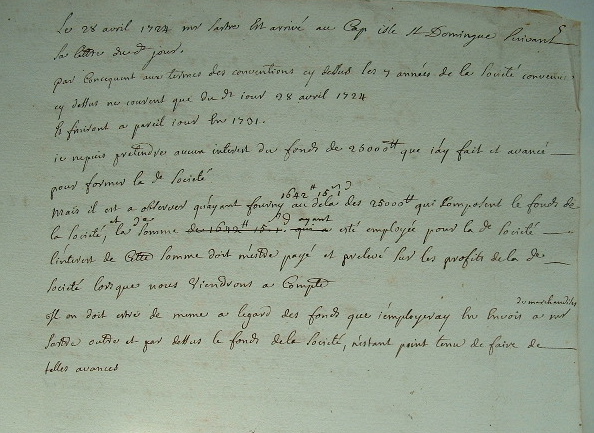 Le 28 avril 1724 mr Sartre Est arrivé au Cap isle St Domingue suivant
sa lettre du dt jour.
par Concequent aux termes des conventions cy dessus les 7 années de la Société convenue
cy dessus ne courent que du dt iour 28 avril 1724
& finiront a pareil iour En 1731.
ie nepuis pretendre aucun interest du fonds de 25000tt que i'ay fait et avancé
pour former la de Société
mais il est a observer qu'ayant fourny 1642tt 15s 1d au dela des 25000tt qui Composent le fonds de
la Société, et la de Somme de 1642tt 15. 1.d qui a ayant esté employée pour la de Société
l'interest de Cette Somme doit m'estre payé et prelevé sur les profits de la de
Société lorsque nous Viendrons a Compte
Il en doit estre de meme a legard des fonds que i'employeray En Envois de marchandises a mr
Sartre outre et par dessus le fonds dela Société, n'estant point tenu de faire de
telles avances